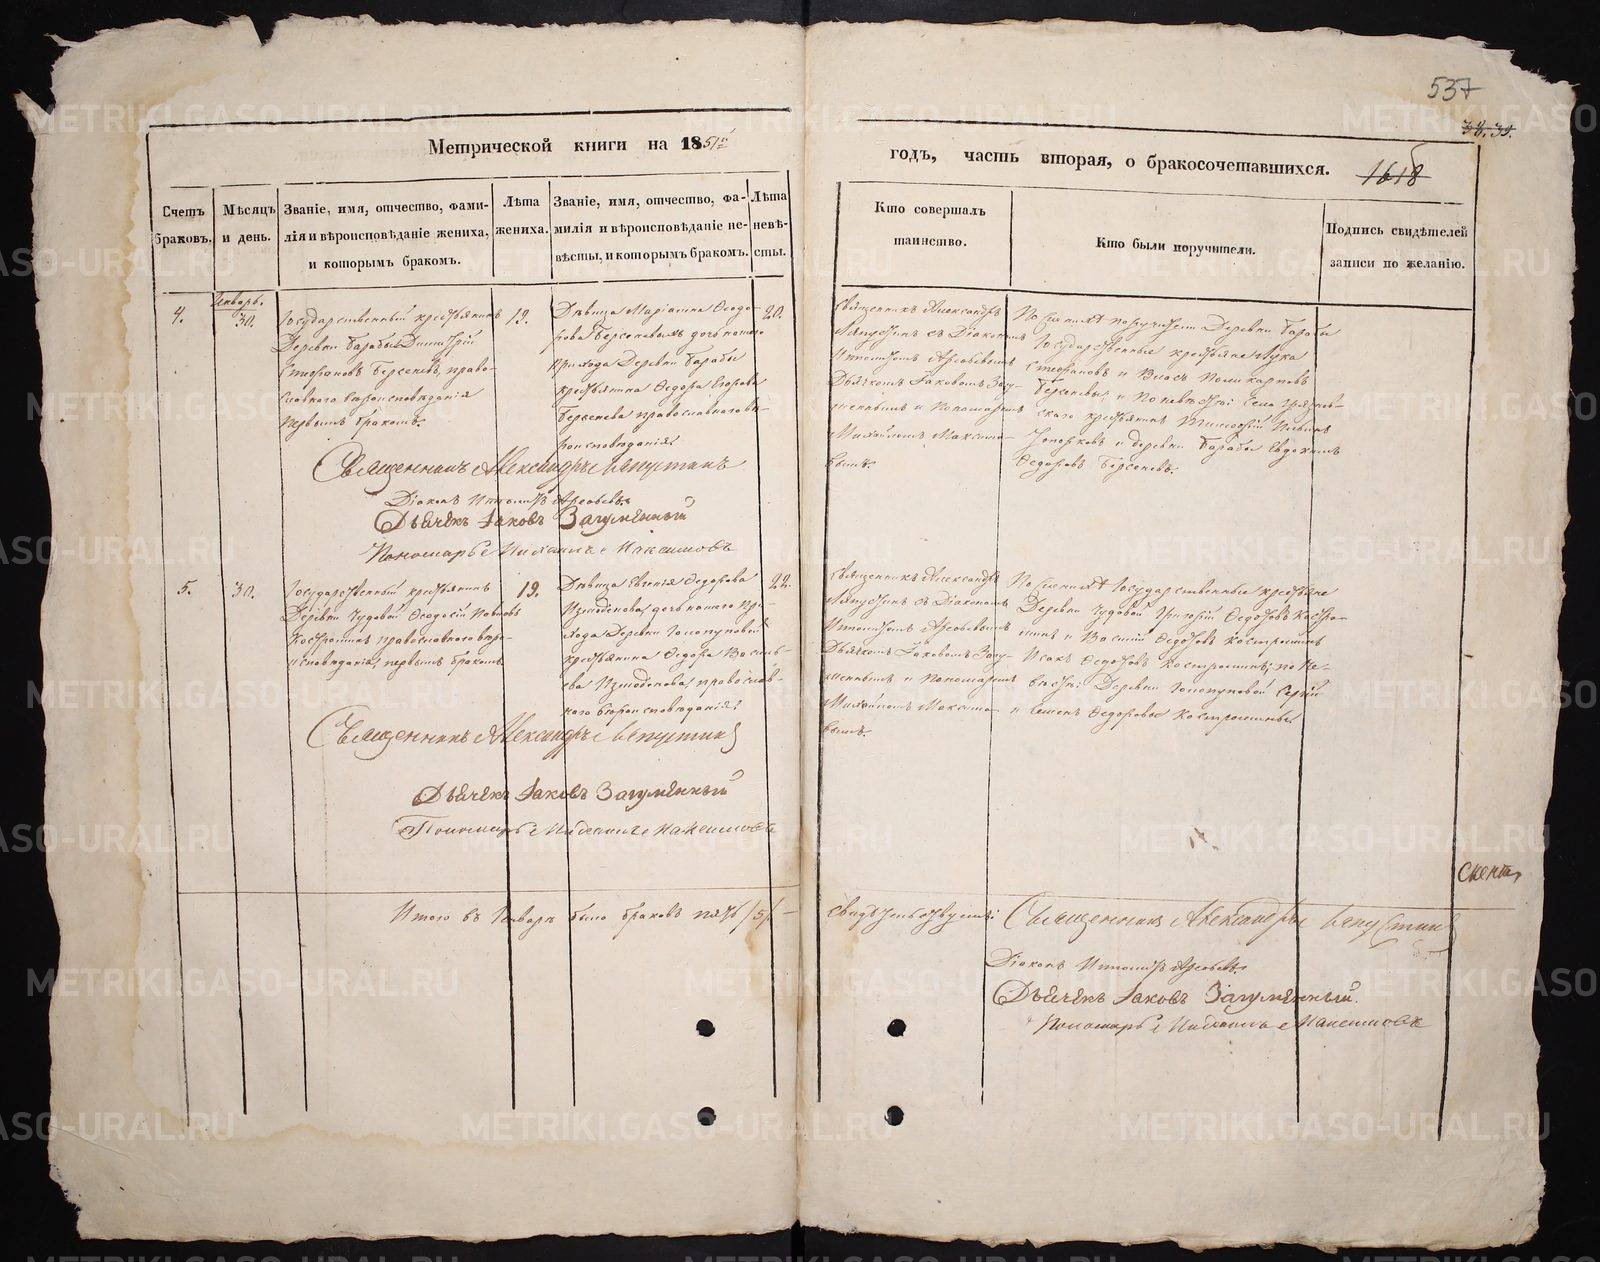 537
38. 39.
1618
Метрической книги на 1851й
годъ, часть вторая, о бракосочетавшихся.
Счетъ браковъ.
Мѣсяцъ и день.
Званіе, имя, отчество, фами-
лія и вѣроисповѣданіе жениха,
и которымъ бракомъ.
Лѣта
жениха.
Званіе, имя, отчество, фа-
милія и вѣроисповѣданіе не-
вѣсты, и которымъ бракомъ.
Лѣта
невѣ-
сты.
Кто совершалъ
таинство.
Кто были поручители.
Подпись свидѣтелей
записи по желанію.
Январь.
4.
30.
Государственный крестьянинъ
Деревни Барабы Димитрій
Стефановъ Берсеневъ, право-
славнаго вѣроисповѣданія
первымъ бракомъ.
19.
Дѣвица Маріанна Ѳеодо-
рова Берсенева, дочь нашего
прихода Деревни Барабы
крестьянина Ѳедора Егорова
Берсенева православнаго вѣ-
роисповѣданія
20.
Священникъ Александръ
Ляпустинъ съ Діакономъ
Ипполитомъ Арѳьевымъ
Дьячкомъ Іаковомъ Загу-
меннымъ и Пономаремъ
Михаиломъ Максимо-
вымъ.
По женихѣ поручители Деревни Барабы
Государственные крестьяне Лука
Стефановъ и Власъ Поликарповъ
Берсеневы, и По невѣстѣ: Села
скаго крестьянинъ Тимоѳей
и деревни Барабы Евдокимъ
Ѳедоровъ Берсеневъ.
Священникъ Александръ Ляпустинъ
Діаконъ Ипполитъ Арѳьевъ.
Дьячекъ Іаковъ Загуменный
Пономарь Михаилъ Максимовъ
5.
30.
Государственный крестьянинъ
Деревни Чудовой Ѳеодосій Павловъ
Костроминъ православнаго вѣро-
исповѣданія, первымъ бракомъ.
19.
Дѣвица Евгенія Ѳедорова
Измоденова, дочь нашего при-
хода Деревни Голопуповой
крестьянина Ѳедора Василь-
ева Измоденова, православ-
наго вѣроисповѣданія
22.
Священникъ Александръ
Ляпустинъ съ Діакономъ
Ипполитомъ Арѳьевымъ
Дьячкомъ Іаковомъ Загу-
меннымъ и Пономаремъ
Михаиломъ Максимо-
вымъ.
По женихѣ Государственные крестьяне
Деревни Чудовой Григорій Ѳедоровъ Костро-
минъ и Василій Ѳедоровъ Костроминъ
Исакъ Ѳедоровъ Костроминъ; по не-
вѣстѣ: Деревни Голопуповой Сергій
и Семенъ Ѳедоровы Костромины
Священникъ Александръ Ляпустинъ
Дьячекъ Іаковъ Загуменный
Пономарь Михаилъ Максимовъ
Скепилъ
Итого въ Январѣ было браковъ пять /5/ — свидѣтельствуемъ: Священникъ Александръ Ляпустинъ
Діаконъ Ипполитъ Арѳьевъ.
Дьячекъ Іаковъ Загуменный.
Пономарь Михаилъ Максимовъ
METRIKI.GASO-URAL.RU